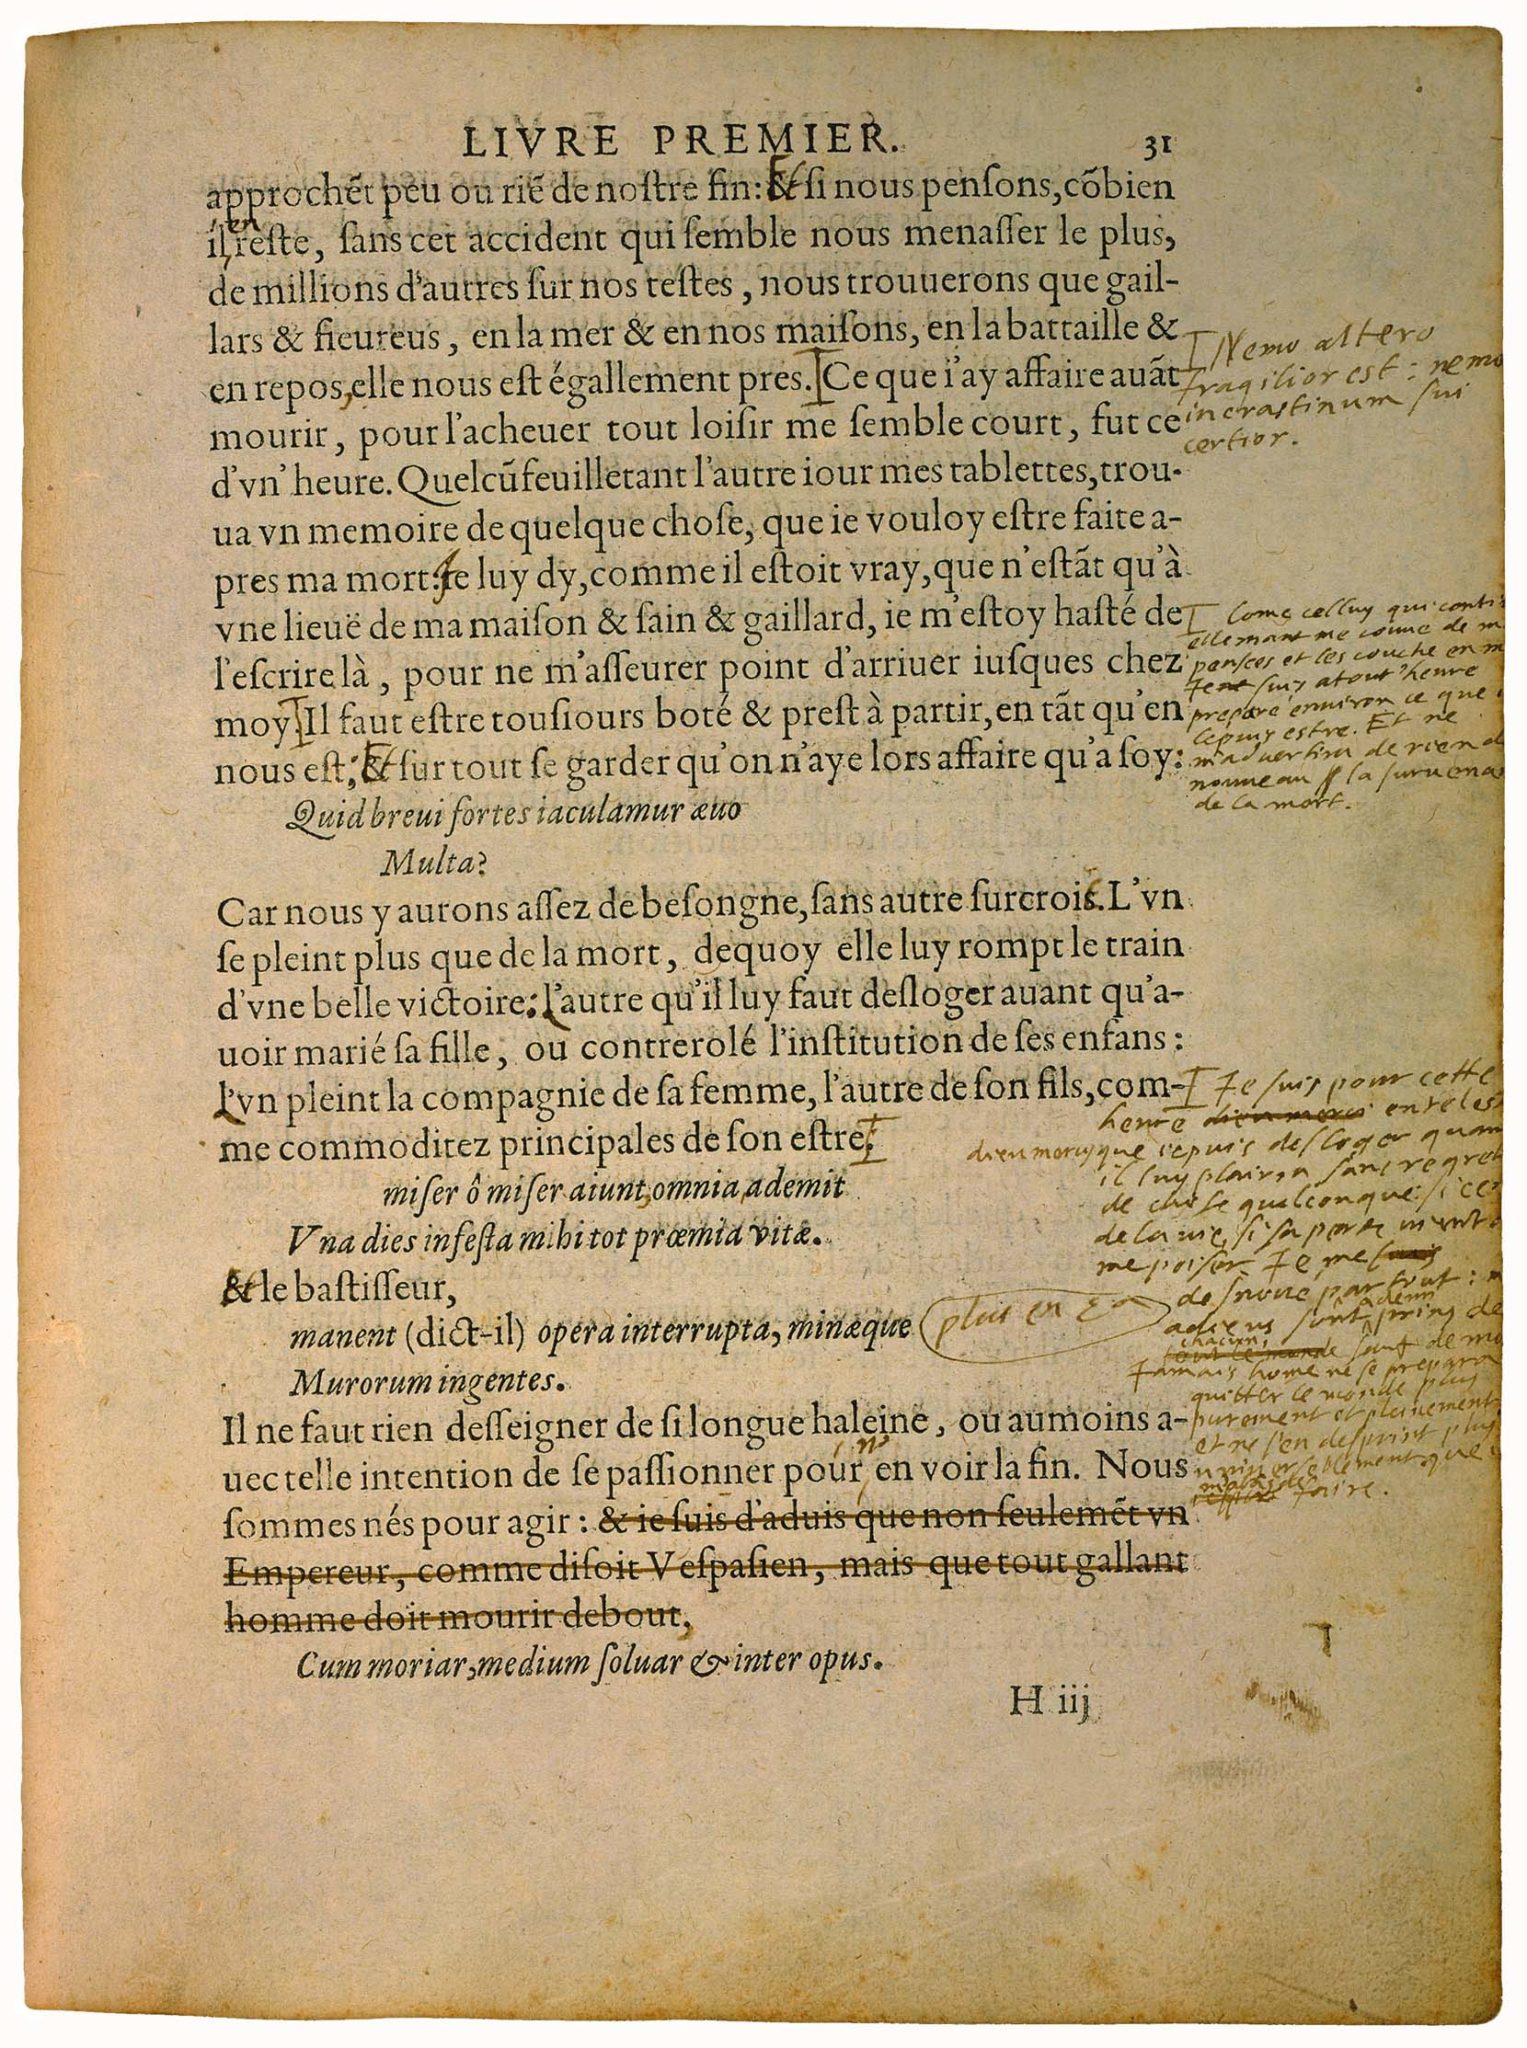 LIVRE PREMIER. 31
approchẽt peu ou riẽ de noſtre fin: Et ſi nous penſons, cõbien
il en reſte, ſans cet accident qui ſemble nous menaſſer le plus,
de millions d'autres ſur nos teſtes, nous trouuerons que gail-
lars & fieureus, en la mer & en nos maiſons, en la battaille &
en repos, elle nous eſt égallement pres. Ce que i'ay affaire auãt
mourir, pour l'acheuer tout loiſir me ſemble court, fut ce
d'vn' heure. Quelcũ feuilletant l'autre iour mes tablettes, trou-
ua vn memoire de quelque choſe, que ie vouloy eſtre faite a-
pres ma mort: Je luy dy, comme il eſtoit vray, que n'eſtãt qu'à
vne lieuë de ma maiſon & ſain & gaillard, ie m'eſtoy haſté de
l'eſcrire là, pour ne m'aſſeurer point d'arriuer iuſques chez
moy. Il faut eſtre touſiours boté & preſt à partir, en tãt qu'en
nous eſt; Et ſur tout ſe garder qu'on n'aye lors affaire qu'a ſoy:
Quid breui fortes iaculamur æuo
Multa?
Car nous y aurons aſſez de beſongne, ſans autre ſurcroi. L'vn
ſe pleint plus que de la mort, dequoy elle luy rompt le train
d'vne belle victoire: L'autre qu'il luy faut desloger auant qu'a-
uoir marié ſa fille, ou contrerolé l'inſtitution de ſes enfans:
L'vn pleint la compagnie de ſa femme, l'autre de ſon fils, com-
me commoditez principales de ſon eſtre.
miſer ô miſer aiunt, omnia, ademit
Vna dies infeſta mihi tot præmia vitæ.
Et le baſtiſſeur,
manent (dict-il) opera interrupta, minæque
Murorum ingentes.
Il ne faut rien deſſeigner de ſi longue haleine, ou aumoins a-
uec telle intention de ſe paſſionner pour n' en voir la fin. Nous
ſommes nés pour agir: & ie ſuis d'aduis que non ſeulemẽt vn
Empereur, comme diſoit Veſpaſien, mais que tout gallant
homme doit mourir debout,
Cum moriar, medium ſoluar & inter opus.
H iij
Nemo altero
fragilior est: nemo
in crastinum sui
certior.
Come celluy qui conti
ellemant me couve de m
pensees et les couche en m
Je suis a tout'heure
prepare environ ce que
je puis estre. Et ne
m'advertira de rien de
nouveau la survena
de la mort.
Je suis pour cette
heure dieu merci en tel est
dieu mercy que je puis desloger quan
il luy plairra sans regret
de chose quelconque: si ce
de la vie, si sa perte vient a
me poiser Je me
desnoue par tout: m
adieus sont a demi prins de
chacun, sauf de mo
Jamais home ne se prepara
quitter le monde plus
purement et pleinement
et ne s'en desprint plus
universellement que
faire.
plus en ça